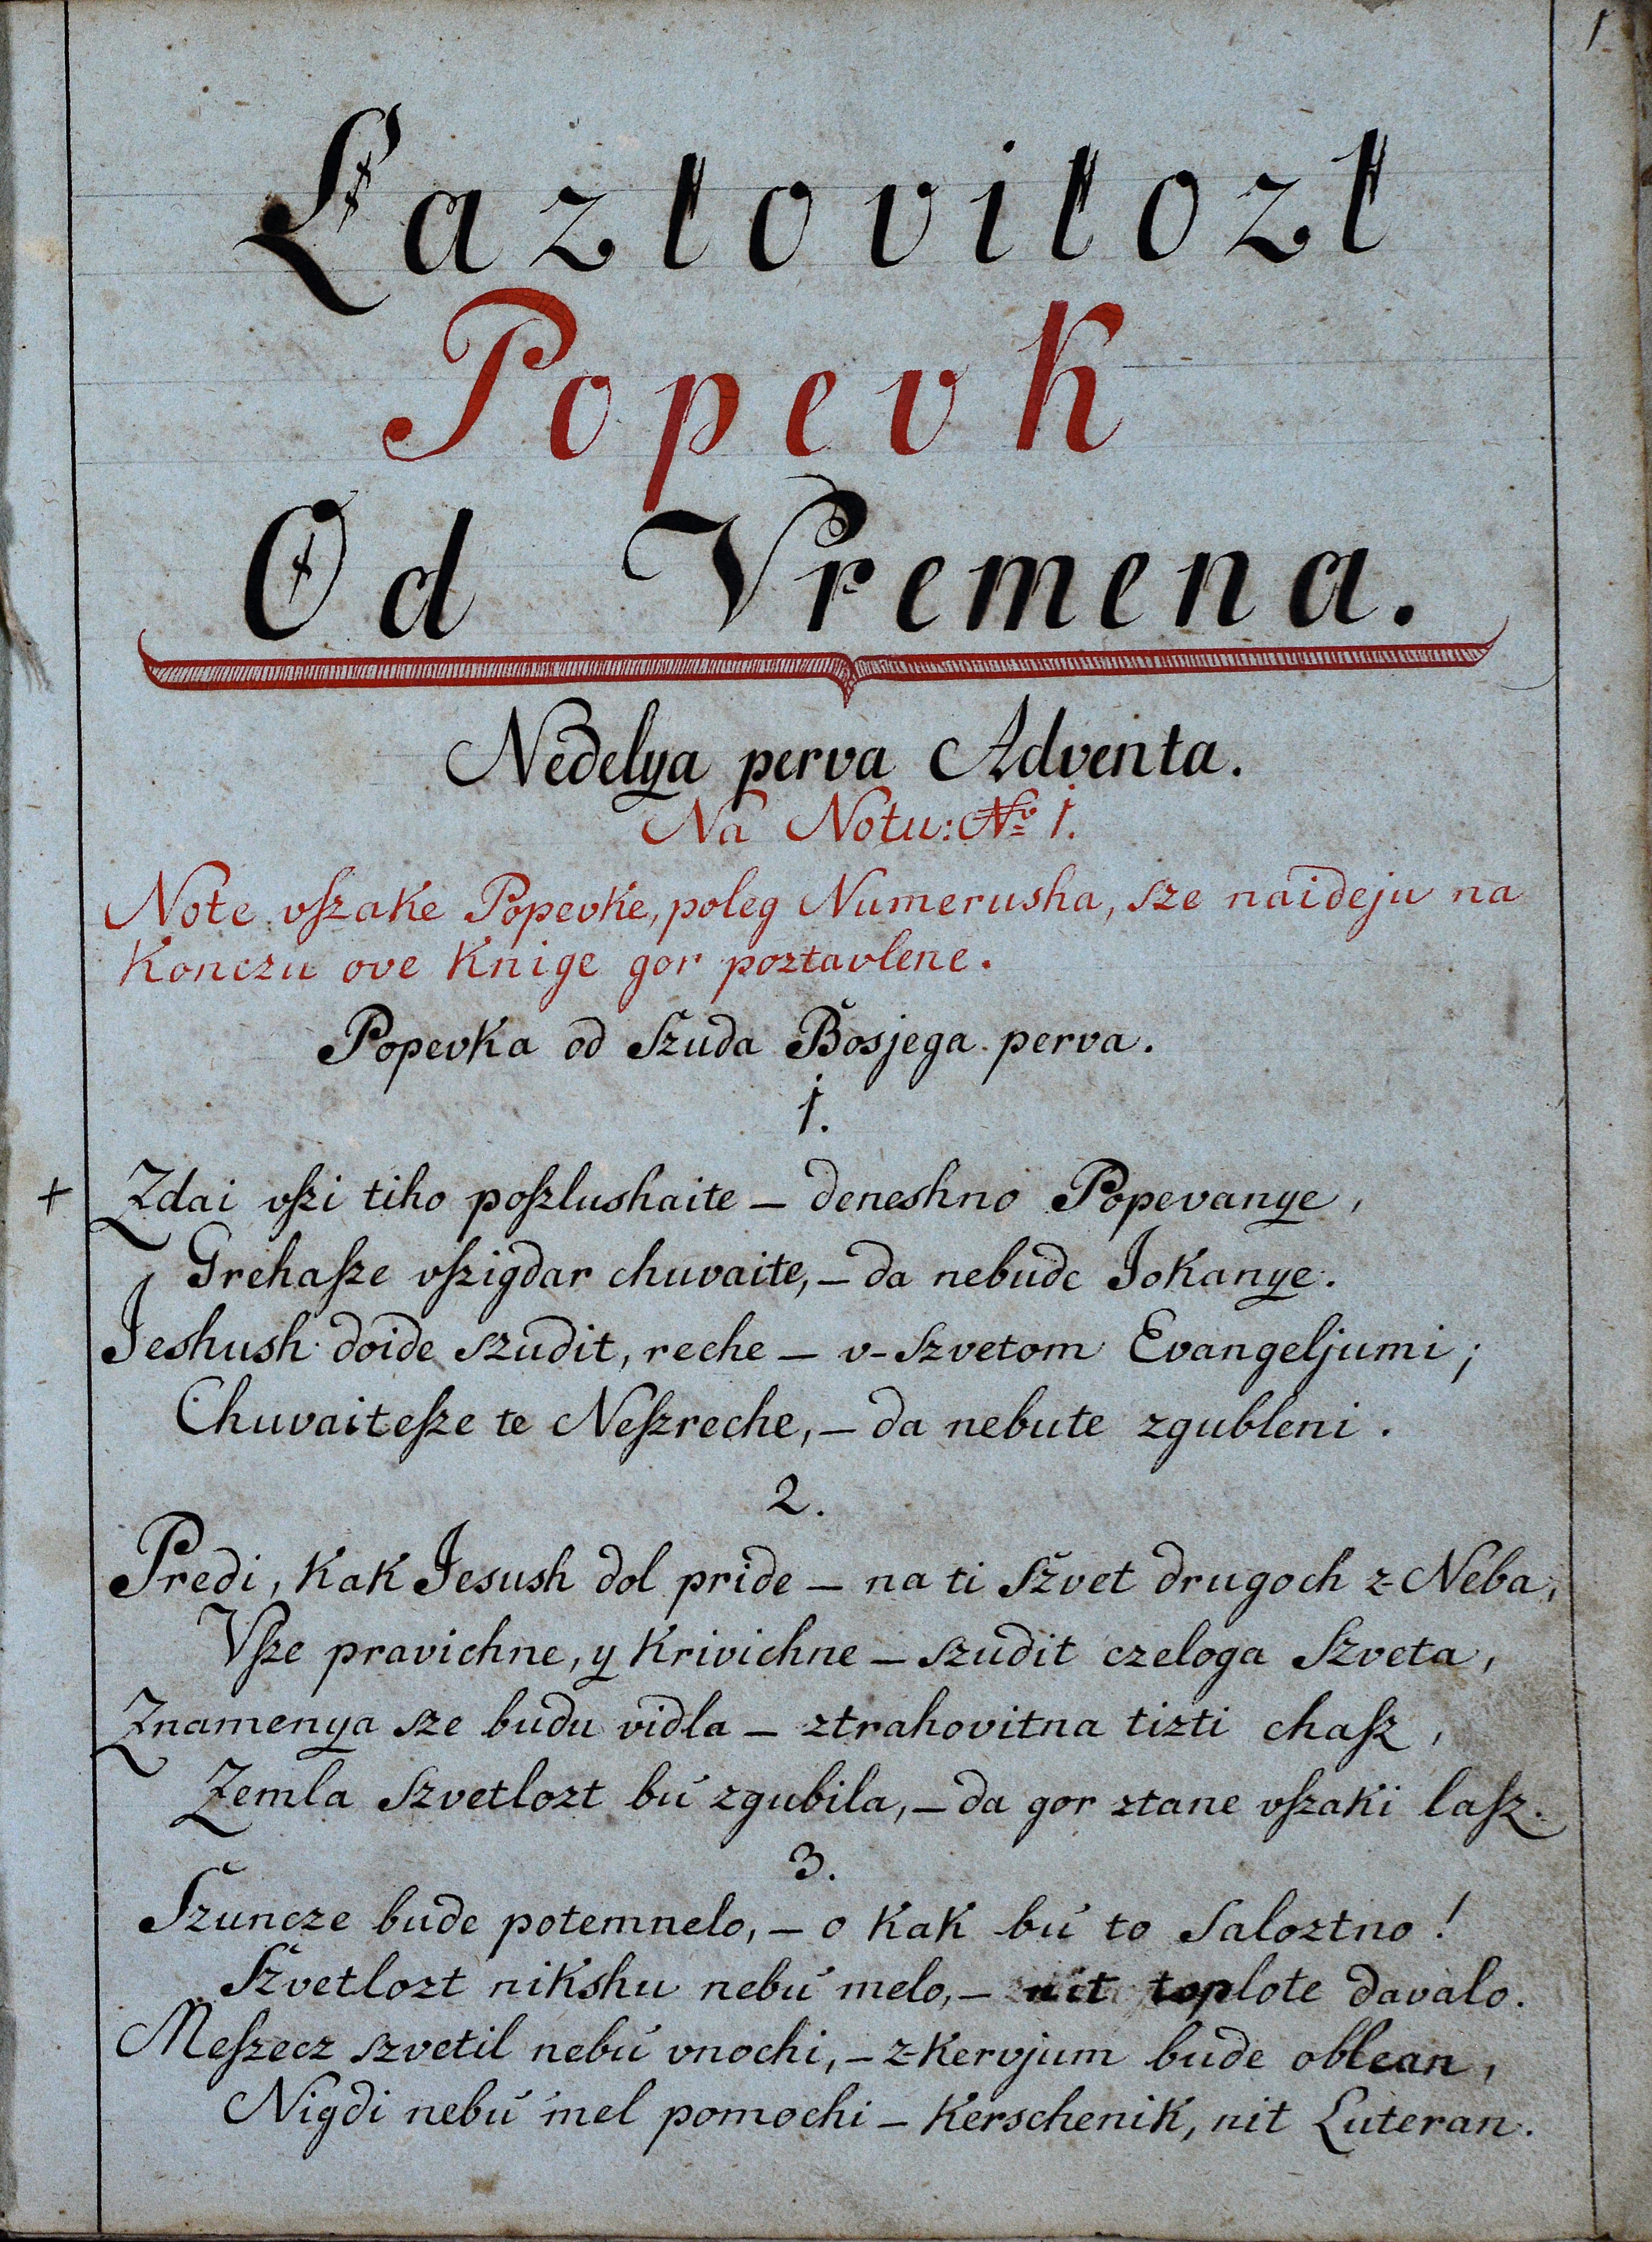 1
Laztovitozt
Popevk
Od Vremena.
Nedelya perva Adventa.
Na Notu: No 1.
Note vſzake Popevke, poleg Numerusha, sze naideju na
Konczu ove Knige gor poztavlene.
Popevka od Szuda Bosjega perva.
1.
+ Zdai vſzi tiho poſzlushaite – deneshno Popevanye,
Grehaſze vſzigdar chuvaite, – da nebude Jokanye.
Jeshush doide szudit, reche – v-Szvetom Evangeljumi;
Chuvaiteſze te Neſzreche, – da nebute zgubleni.
2.
Predi, kak Jesush dol pride – na ti Szvet drugoch z-Neba,
Vſze pravichne, y krivichne – szudit czeloga Szveta,
Znamenya sze budu vidla – ztrahovitna tizti chaſz,
Zemla Szvetlozt bú zgubila, – da gor ztane vſzaki laſz.
3.
Szuncze bude potemnelo, – o kak bú to Saloztno!
Szvetlozt nikshu nebú melo, – nit toplote davalo.
Meſzecz szvetil nebú vnochi, – z-kervjum bude oblean,
Nigdi nebú mel pomochi – Kerschenik, nit Luteran.